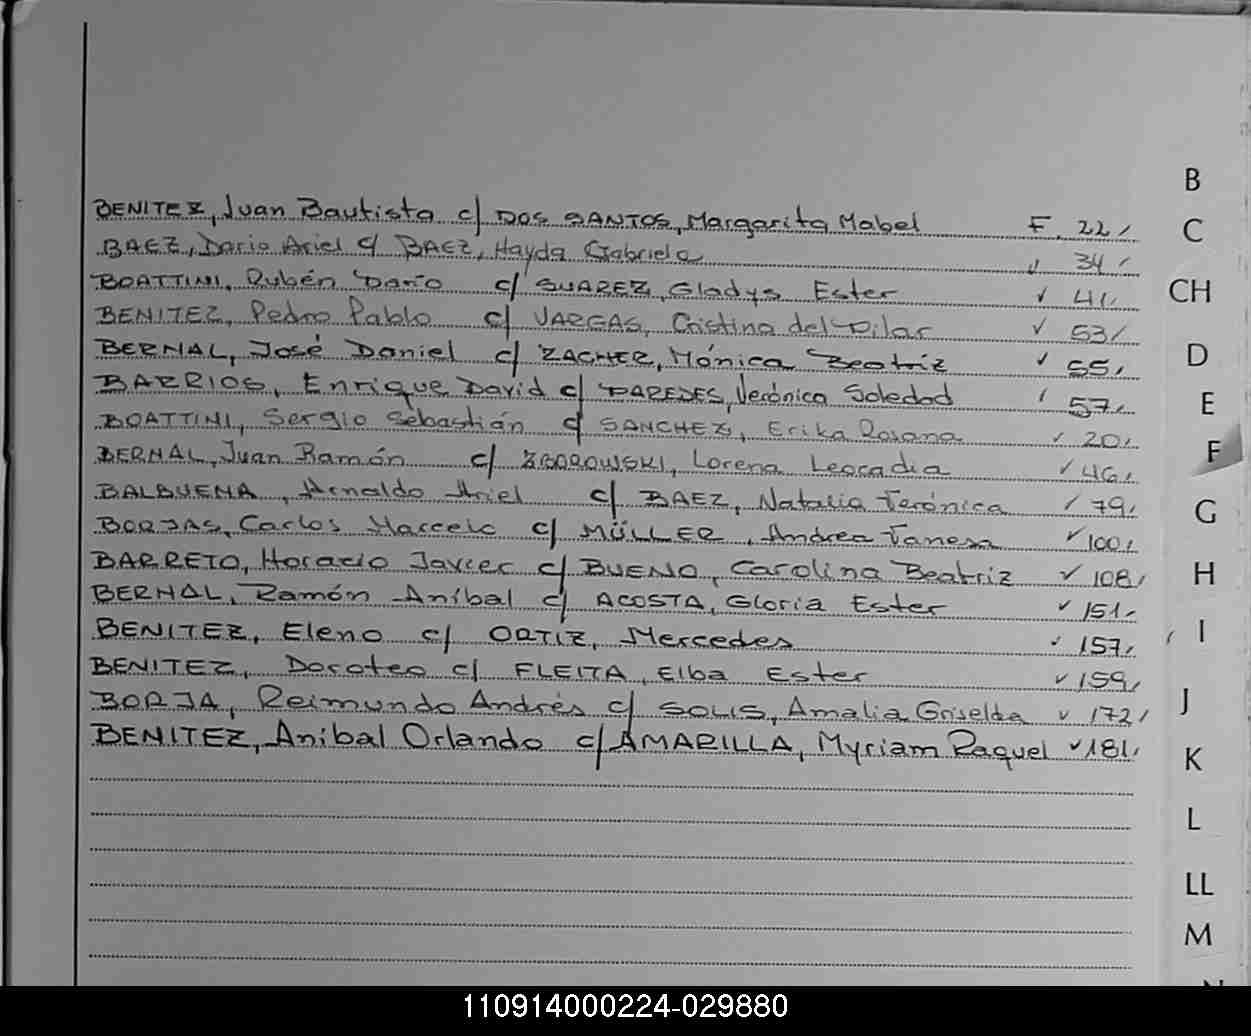 B
BENITEZ, Juan Bautista c/ DOS SANTOS, Margarita Mabel F. 22/
C
BAEZ, Dario Ariel c/ BAEZ, Hayda Gabriela √ 34/
BOATTINI, Rubén Darío c/ SUAREZ, Gladys Ester √ 41/
CH
BENITEZ, Pedro Pablo c/ VARGAS, Cristina del Pilar √ 53/
BERNAL, José Daniel c/ ZACHER, Mónica Beatriz √ 55/
D
BARRIOS, Enrique David c/ PAREDES, Verónica Soledad / 57/
E
BOATTINI, Sergio Sebastián c/ SANCHEZ, Erika Rosana √ 20/
F
BERNAL, Juan Ramón c/ ZBOROWSKI, Lorena Leocadia √ 46/
BALBUENA, Arnaldo Ariel c/ BAEZ, Natalia Verónica / 79/
G
BORJAS, Carlos Marcelo c/ MÜLLER, Andrea Vanesa √ 100/
BARRETO, Horacio Javier c/ BUENO, Carolina Beatriz √ 108/
H
BERNAL, Ramón Aníbal c/ ACOSTA, Gloria Ester √ 151/
BENITEZ, Eleno c/ ORTIZ, Mercedes √ 157/
I
BENITEZ, Doroteo c/ FLEITA, Elba Ester √ 159/
BORJA, Reimundo Andrés c/ SOLIS, Amalia Griselda √ 172/
J
BENITEZ, Anibal Orlando c/ AMARILLA, Myriam Raquel √ 181/
K
L
LL
M
N
110914000224-029880